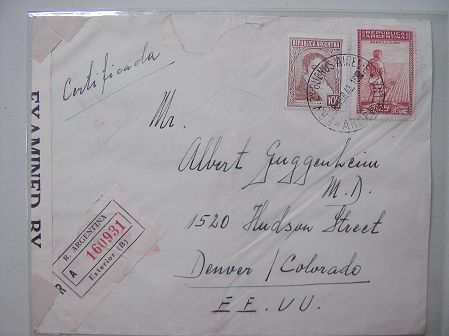 Certificada
REPUBLICA ARGENTINA
10
REPUBLICA
ARGENTINA
AGRICULTURA
25
BUENOS AIRES
EXAMINED BY
Mr.
Albert Guggenheim
M.D.
1520 Hudson Street
Denver / Colorado
EE. UU.
R. ARGENTINA
A 160931
Exterior (B)
R